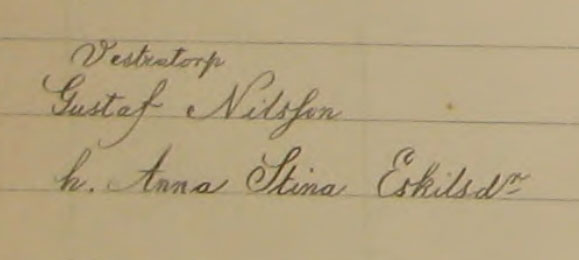 Vestratorp
Gustaf Nilsson
h. Anna Stina Eskilsdr